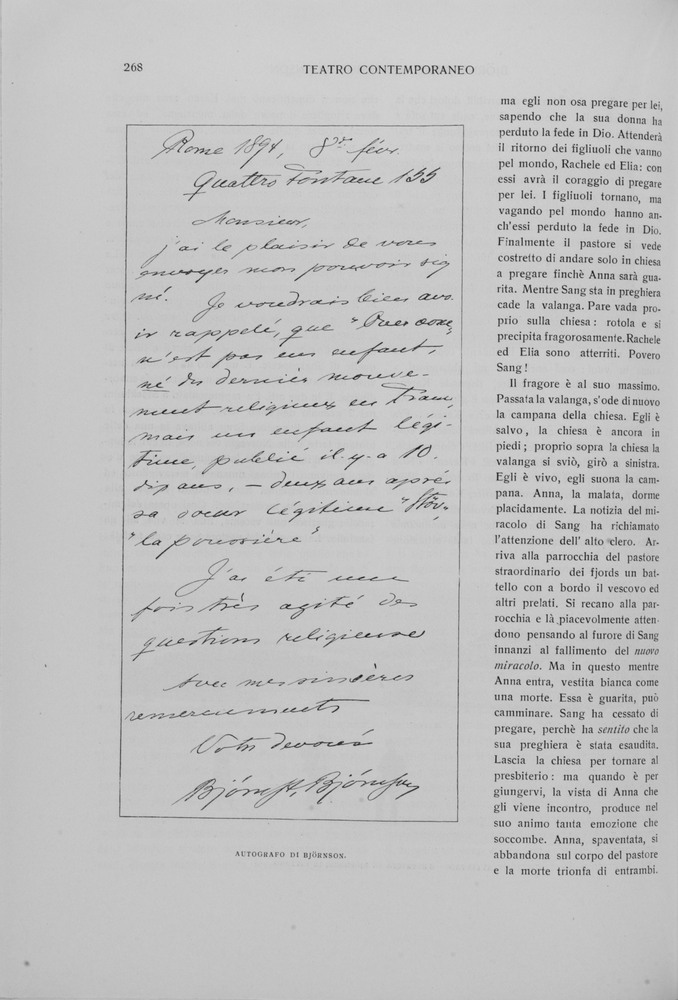 268
TEATRO CONTEMPORANEO
Rome 1894, 8de févr.
Quattro Fontane 155
Monsieur,
j'ai le plaisir de vous
envoyer mon pouvoir sig
né. Je voudrais bien avo
ir rappelé, que "Over ævne"
n'est pas un enfant,
né du dernier mouve-
ment religieux en France,
mais un enfant légi-
time, publié il-y-a 10.
dix ans, – deux ans après
sa soeur légitime "Stöv"
"la poussière"
J'ai été une
fois très agité des
questions religieuse
Avec mes sincères
remerciements
Votre devoué
Björnst. Björnson
AUTOGRAFO DI BJÖRNSON.
ma egli non osa pregare per lei,
sapendo che la sua donna ha
perduto la fede in Dio. Attenderà
il ritorno dei figliuoli che vanno
pel mondo, Rachele ed Elia: con
essi avrà il coraggio di pregare
per lei. I figliuoli tornano, ma
vagando pel mondo hanno an-
ch'essi perduto la fede in Dio.
Finalmente il pastore si vede
costretto di andare solo in chiesa
a pregare finchè Anna sarà gua-
rita. Mentre Sang sta in preghiera
cade la valanga. Pare vada pro-
prio sulla chiesa: rotola e si
precipita fragorosamente. Rachele
ed Elia sono atterriti. Povero
Sang!
Il fragore è al suo massimo.
Passata la valanga, s'ode di nuovo
la campana della chiesa. Egli è
salvo, la chiesa è ancora in
piedi; proprio sopra la chiesa la
valanga si sviò, girò a sinistra.
Egli è vivo, egli suona la cam-
pana. Anna, la malata, dorme
placidamente. La notizia del mi-
racolo di Sang ha richiamato
l'attenzione dell' alto clero. Ar-
riva alla parrocchia del pastore
straordinario dei fjords un bat-
tello con a bordo il vescovo ed
altri prelati. Si recano alla par-
rocchia e là piacevolmente atten-
dono pensando al furore di Sang
innanzi al fallimento del nuovo
miracolo. Ma in questo mentre
Anna entra, vestita bianca come
una morte. Essa è guarita, può
camminare. Sang ha cessato di
pregare, perchè ha sentito che la
sua preghiera è stata esaudita.
Lascia la chiesa per tornare al
presbiterio: ma quando è per
giungervi, la vista di Anna che
gli viene incontro, produce nel
suo animo tanta emozione che
soccombe. Anna, spaventata, si
abbandona sul corpo del pastore
e la morte trionfa di entrambi.